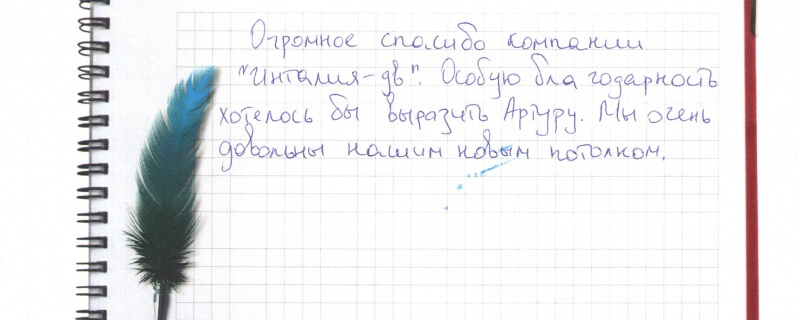 Огромное спасибо компании
"Инталия-дв". Особую бла годарность
хотелось бы выразить Артуру. Мы очень
довольны нашим новым потолком.